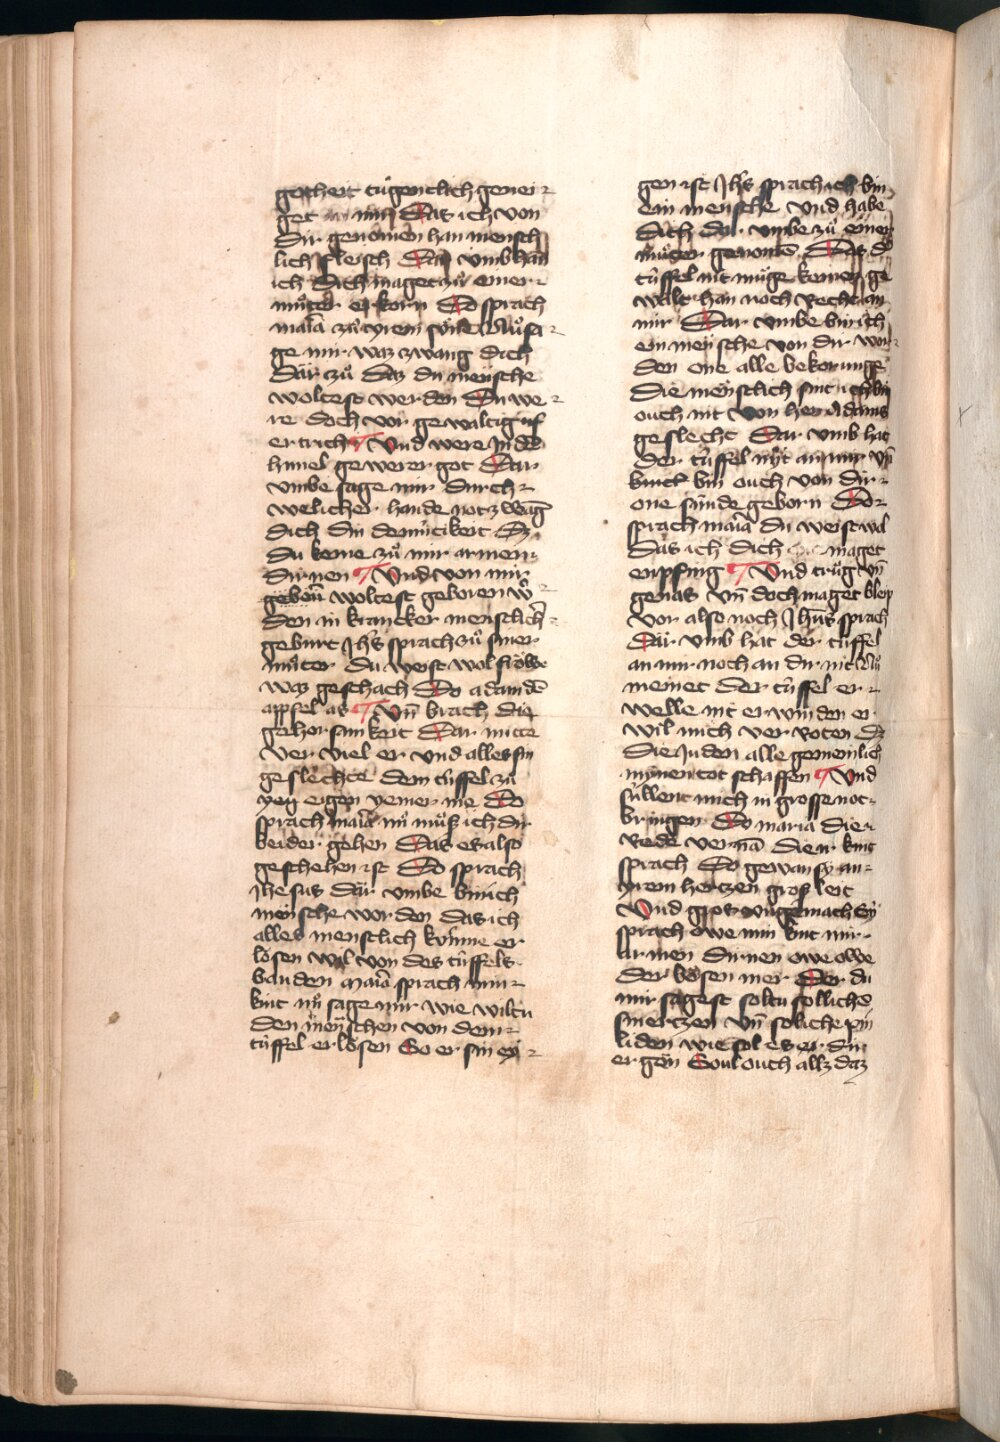 gotheit tugenclich genei-
get an mich Das ich von
dir genomen han mensch
lich fleisch Dar umb han
ich dich maget zů einer
můter er korn Do sprach
maīa zů irem sůne Nů sa-
ge mir waz zwang dich
dar zů daz du mensche
woltest werden Du we-
re doch vor gewaltig uf
ertrich Und were in dē
himel gewerer got Dar
umbe sage mir durch
welicher hande not zwāg
dich din demůtikeit Dz
du keme zů mir armen
dirnen Und von mir
woltest geboren w
den in krancker menschlich
geburt Jhs sprach zů siner
můter du weist wol fröwe
waz geschach Do adam dē
appfel as Vn̄ brach die
gehorsamkeit Dar mitte
ver viel er und alles sin
geslechte dem tüffel zů
eigen yemer me Do
sprach maīa nů můß ich dir
beider gehen Das es also
geschehen ist Do sprach
Jhesus dar umbe bin ich
mensche worden das ich
alles menschlich kunne er
lösen wil von des tüffels
banden maīa sprach min
kint nů sage mir wie wiltu
den menschen von dem
tüffel erlösen So er sin ey-
gen ist Jhs sprach ich bin
ein mensche Und habe
dich dar umbe zů einer
můter genomē Das d
tüffel nit müge keinen ge
walt han noch recht an
mir Dar umbe bin ich
ein mensche von dir wor-
den one alle bekorunge
die menschlich sint ich bin
ouch nit von hern Adams
geslecht Dar umb hat
der tüffel nyt an mir Vn̄
kinck bin ouch von dir
one sünde geborn Do
sprach maīa du weist wol
das ich dich maget
enpfing Und trůg vn̄
genas Vn̄ doch maget bleip
vor also noch Jhūs sprach
Dar umb hat der tüffel
an mir noch an dir nit Nů
meinet der tüffel er
welle nit erwinden er
wil mich ver roten Dz
die Juden alle gemeinlich
minen tot schaffen Und
süllent mich in grosse not
bringen Do maria die
rede vernā die ir kint
sprach Do gewan sy an
irem hertzen groß leit
Und gros ungemach Sy
sprach owe min kint mir
armen dirnen owe owe
der bösen mer Der du
mir sagest soltu solliche
smertzen Vn̄ soliche pin
liden wie sol es er dir
ergön Soul ouch allz daz